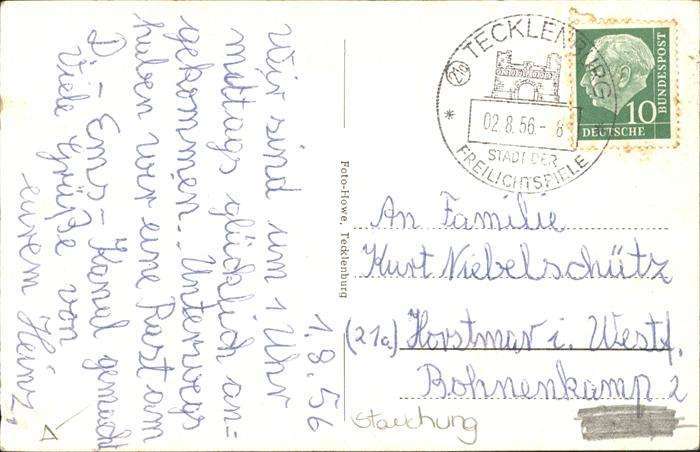 1.8.56
Wir sind um 1 Uhr
mittags glücklich an=
gekommen. Unterwegs
haben wir eine Rast am
D-Ems-Kanal gemacht
Viele Grüße von
eurem Heinz.
Foto-Howe, Tecklenburg
(21a) TECKLENBURG
02.8.56 - 8
STADT DER
FREILICHTSPIELE
10
DEUTSCHE BUNDESPOST
An Familie
Kurt Niebelschütz
(21a) Horstmar i. Westf.
Bohnenkamp 2